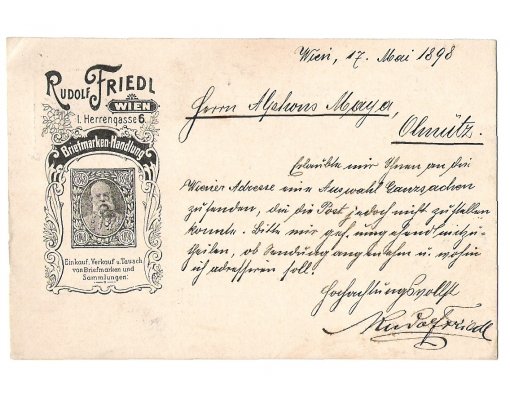 RUDOLF FRIEDL
WIEN
I. Herrengasse 6.
Briefmarken-Handlung
Einkauf, Verkauf u. Tausch
von Briefmarken und
Sammlungen.
Wien, 17. Mai 1898
Herrn Alphons Mayer,
Olmütz.
Erlaubte mir Ihnen an die
Wiener Adresse eine Auswahl Ganzsachen
zusenden, die die Post jedoch nicht zustellen
konnte. Bitte mir gef. umgehend mitzu-
theilen, ob Sendung angenehm u. wohin
ich adressieren soll.
Hochachtungsvollst
Rudolf Friedl